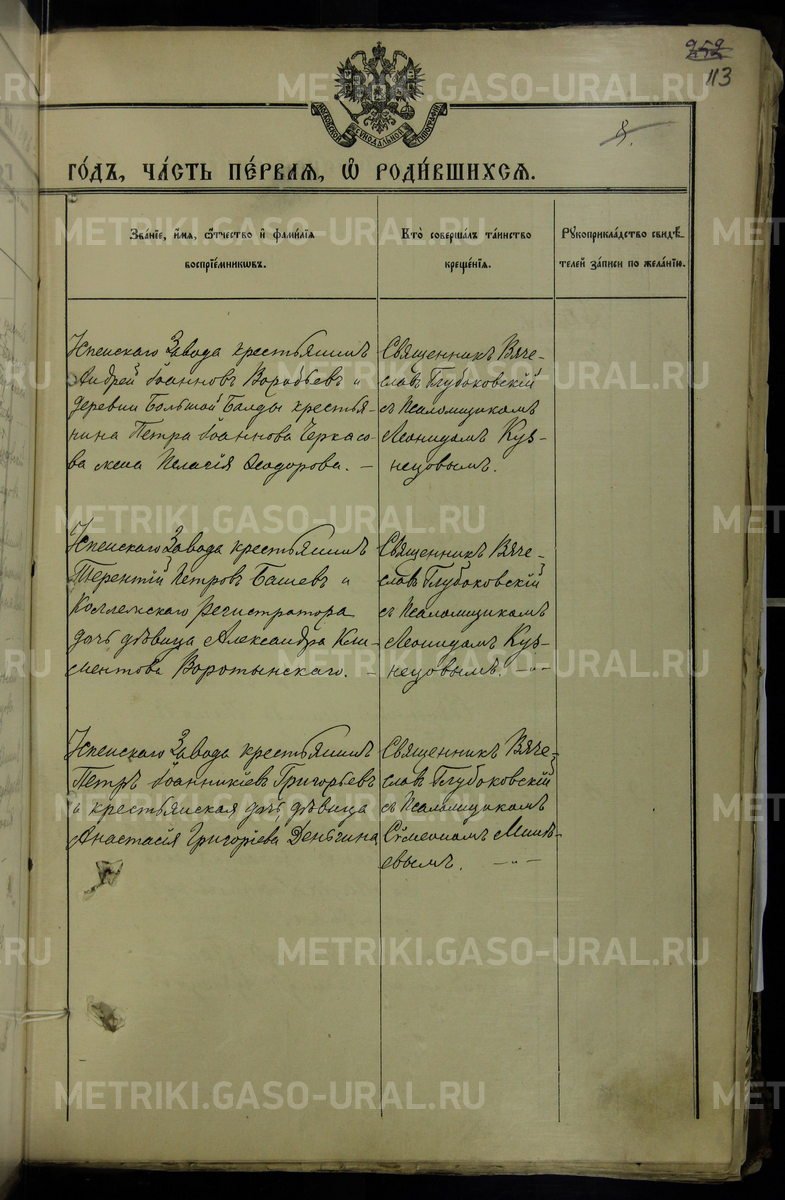 252
113
МОСКОВСКОЙ СѴНОДАЛЬНОЙ ТИПОГРАФІИ
ГО́ДЪ, ЧА́СТЬ ПЕ́РВАЯ, Ѽ РОДИ́ВШИХСЯ.
Зва́нїе, и҆́мя, ѻ҆́тчество и҆ фами́лїя
воспрїе́мникѡвъ.
Кто̀ соверша́лъ та́инство
креще́нїя.
Рꙋкоприкла́дство свидѣ́-
телей за́писи по жела́нїю.
Завода крестьянинъ
Андрей Іоанновъ Воробьевъ и
деревни Большой Балды крестья-
нина Петра Іоаннова Черкасо-
ва жена Пелагія Ѳеодорова. —
Священникъ Вяче-
славъ Глубоковскій
съ Псаломщикомъ
Леонидомъ Куз-
нецовымъ.
Завода крестьянинъ
Терентій Петровъ Башевъ и
Коллежскаго Регистратора
дочь дѣвица Александра Кли-
ментова Воротынскаго. —
Священникъ Вяче-
славъ Глубоковскій
съ Псаломщикомъ
Леонидомъ Куз-
нецовымъ. —"—
Завода крестьянинъ
Петръ Іоанникіевъ Григорьевъ
и крестьянская дочь, дѣвица
Анастасія Григоріева Деньгина
Священникъ Вяче-
славъ Глубоковскій
съ Псаломщикомъ
Сѵмеономъ Минѣ-
евымъ. —"—
METRIKI.GASO-URAL.RU